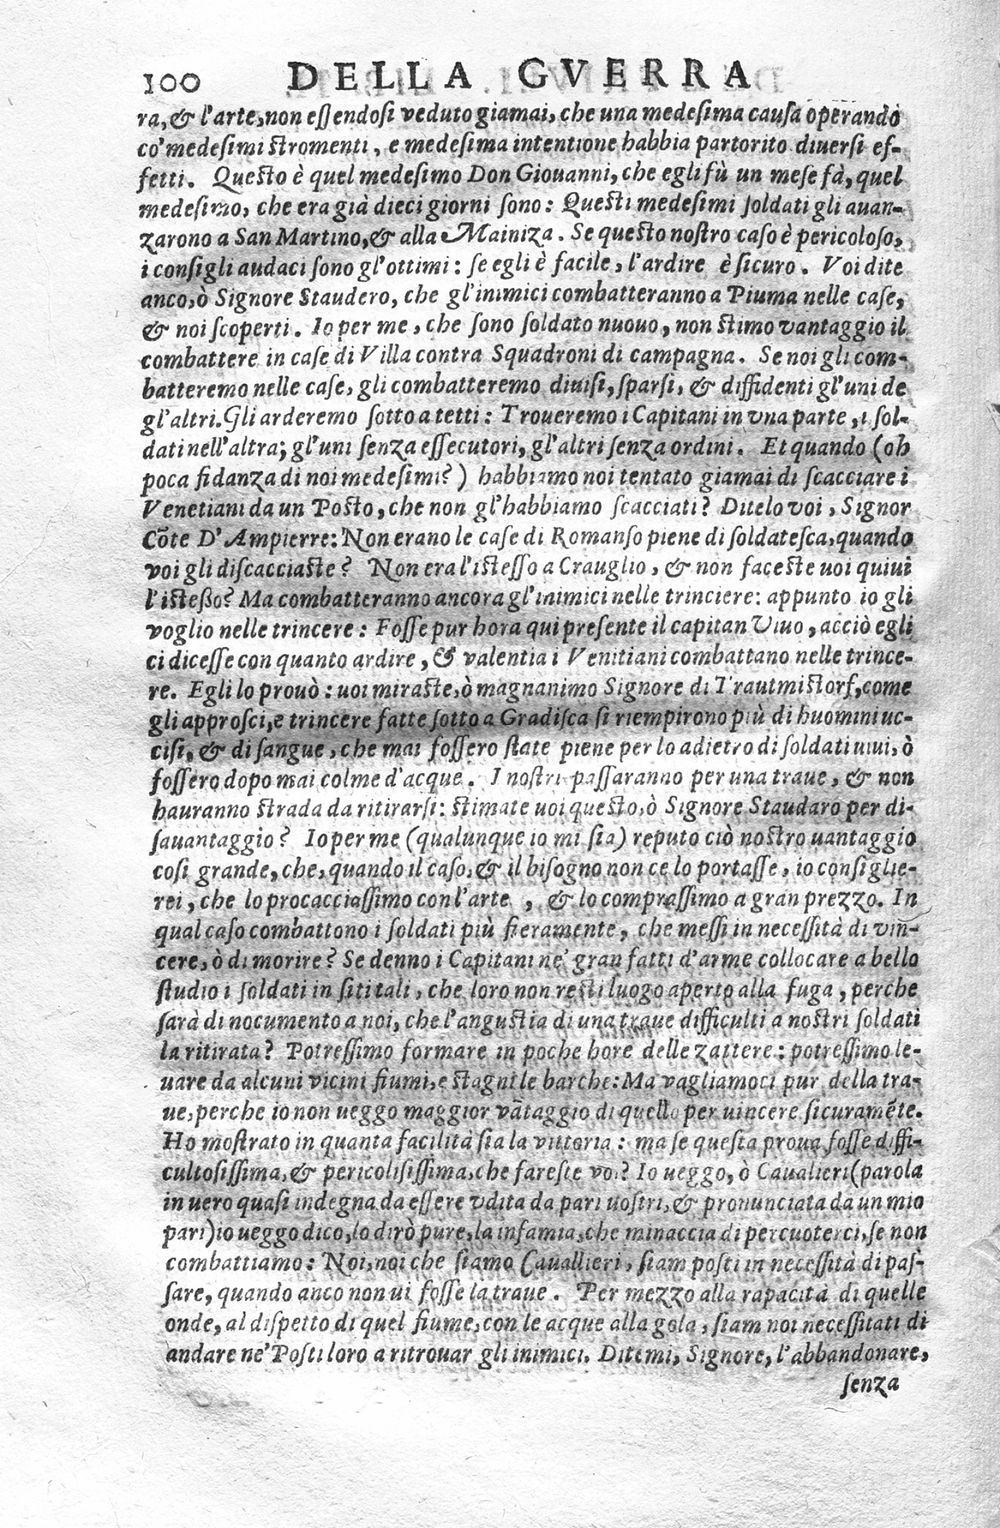 100 DELLA GVERRA
ra, & l'arte, non eſſendoſi veduto giamai, che una medeſima cauſa operando
co' medeſimi ſtromenti, e medeſima intentione habbia partorito diuerſi ef-
fetti. Queſto è quel medeſimo Don Giouanni, che egli fù un meſe fà, quel
medeſimo, che era già dieci giorni ſono: Queſti medeſimi ſoldati gli auan-
zarono a San Martino, & alla Mainiza. Se queſto noſtro caſo è pericoloſo,
i conſigli audaci ſono gl'ottimi: ſe egli è facile, l'ardire è ſicuro. Voi dite
anco, ò Signore Staudero, che gl'inimici combatteranno a Piuma nelle caſe,
& noi ſcoperti. Io per me, che ſono ſoldato nuouo, non ſtimo vantaggio il
combattere in caſe di Villa contra Squadroni di campagna. Se noi gli com-
batteremo nelle caſe, gli combatteremo diuiſi, ſparſi, & diffidenti gl'uni de
gl'altri. Gli arderemo ſotto a tetti: Troueremo i Capitani in vna parte, i ſol-
dati nell'altra; gl'uni ſenza eſſecutori, gl'altri ſenza ordini. Et quando (oh
poca fidanza di noi medeſimi?) habbiamo noi tentato giamai di ſcacciare i
Venetiani da un Poſto, che non gl'habbiamo ſcacciati? Ditelo voi, Signor
Cōte D'Ampierre: Non erano le caſe di Romanſo piene di ſoldateſca, quando
voi gli diſcacciaſte? Non era l'iſteſſo a Crauglio, & non faceſte uoi quiui
l'iſteßo? Ma combatteranno ancora gl'inimici nelle trinciere: appunto io gli
voglio nelle trincere: Foſſe pur hora qui preſente il capitan Viuo, acciò egli
ci diceſſe con quanto ardire, & valentia i Venitiani combattano nelle trince-
re. Egli lo prouò: uoi miraſte, ò magnanimo Signore di Trautmiſtorf, come
gli approſci, e trincere fatte ſotto a Gradiſca ſi riempirono più di huomini uc-
ciſi, & di ſangue, che mai foſſero ſtate piene per lo adietro di ſoldati uiui, ò
foſſero dopo mai colme d'acque. I noſtri paſſaranno per una traue, & non
hauranno ſtrada da ritirarſi: ſtimate uoi queſto, ò Signore Staudaro per di-
ſauantaggio? Io per me (qualunque io mi ſia) reputo ciò noſtro uantaggio
coſi grande, che, quando il caſo, & il biſogno non ce lo portaſſe, io conſiglie-
rei, che lo procacciaſſimo con l'arte, & lo compraſſimo a gran prezzo. In
qual caſo combattono i ſoldati più fieramente, che meſſi in neceſſità di vin-
cere, ò di morire? Se denno i Capitani ne' gran fatti d'arme collocare a bello
ſtudio i ſoldati in ſiti tali, che loro non reſti luogo aperto alla fuga, perche
ſarà di nocumento a noi, che l'anguſtia di una traue difficulti a noſtri ſoldati
la ritirata? Potreſſimo formare in poche hore delle zattere: potreſſimo le-
uare da alcuni vicini fiumi, e ſtagni le barche: Ma vagliamoci pur della tra-
ue, perche io non ueggo maggior vātaggio di quello per uincere ſicuramēte.
Ho moſtrato in quanta facilità ſia la vittoria: ma ſe queſta proua foſſe diffi-
cultoſiſſima, & pericoliſiſſima, che fareſte voi? Io ueggo, ò Caualieri (parola
in uero quaſi indegna da eſſere vdita da pari uoſtri, & pronunciata da un mio
pari) io ueggo dico, lo dirò pure, la infamia, che minaccia di percuoterci, ſe non
combattiamo: Noi, noi che ſiamo Cauallieri, ſiam poſti in neceſſità di paſ-
ſare, quando anco non ui foſſe la traue. Per mezzo alla rapacità di quelle
onde, al diſpetto di quel fiume, con le acque alla gola, ſiam noi neceſſitati di
andare ne' Poſti loro a ritrouar gli inimici. Ditemi, Signore, l'abbandonare,
ſenza